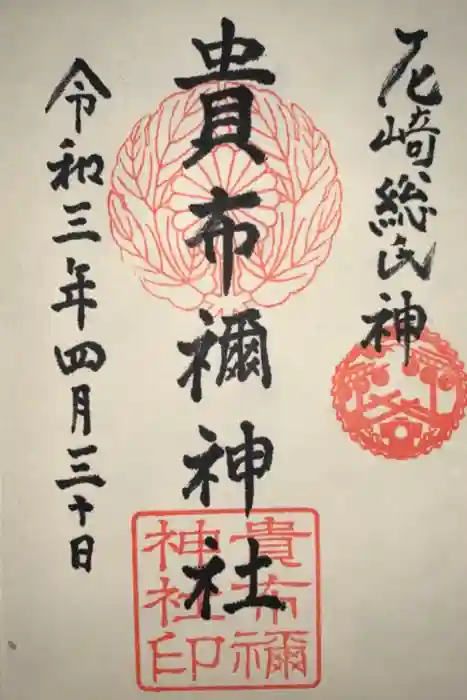 尼崎総氏神
貴布禰神社
令和三年四月三十日
貴布禰
神社印